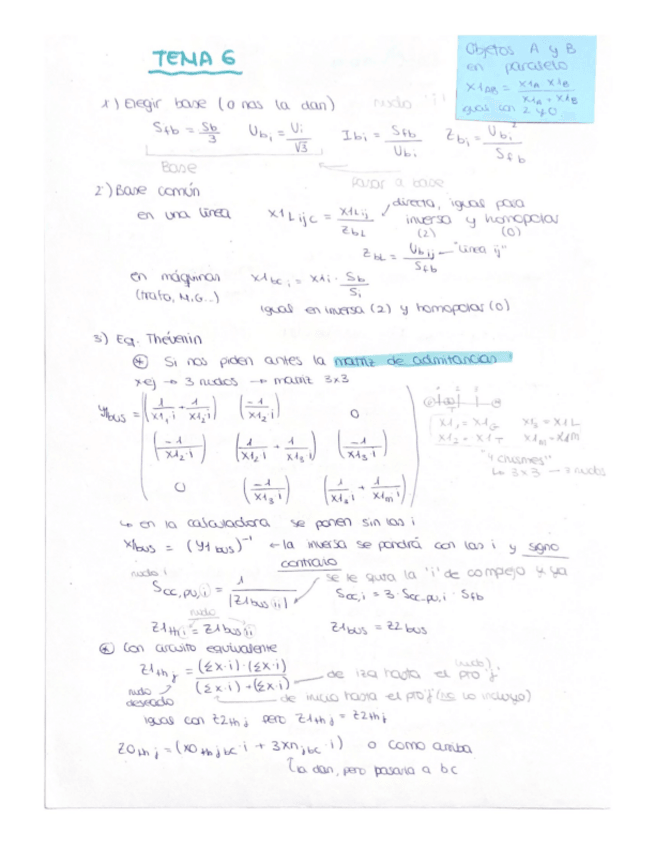 TEMA 6
Objetos A y B
en paralelo
X1AB = X1A · X1B / X1A + X1B
igual con 2 y 0.
1) Elegir base (o nos la dan)
Sfb = Sb/3   Ubi = Ui/√3   Ibi = Sfb/Ubi   Zbi = Ubi²/Sfb
Base
Pasar a base
2) Base común
en una línea   X1Lijc = X1Lij/ZbL   directa, igual para
inversa y homopolar
(2)   (0)
ZbL = Ubij/Sfb - "línea ij"
en máquinas   X1bci = X1i · Sb/Si
(trafo, M,G...)
igual en inversa (2) y homopolar (0)
3) Eq. Thévenin
* Si nos piden antes la matriz de admitancias
x ej → 3 nudos → matriz 3x3
Y1bus = ( (1/X11i + 1/X12i)   (-1/X12i)   0
(-1/X12·i)   (1/X12i + 1/X13i)   (-1/X13i)
0   (-1/X13i)   (1/X13i + 1/X1mi) )
X11 = X1G   X13 = X1L
X12 = X1T   X1m = X1M
"4 chismes"
↳ 3x3 — 3 nudos
↳ en la calculadora se ponen sin las i
X1bus = (Y1bus)⁻¹ ← la inversa se pondrá con las i y signo
contrario
nudo i
Scc,pu,i = 1/|Z1bus ii|   se le quita la "i" de complejo y ya
Scc,i = 3 · Scc,pu,i · Sfb
nudo
Z1thi = Z1bus ii   Z1bus = Z2bus
* Con circuito equivalente
Z1thj = (Σx·i)·(Σx·i) / (Σx·i)+(Σx·i)   de izq hasta el pto "j"
(nudo)
nudo
deseado
de inicio hasta el pto j (no lo incluyo)
igual con Z2thj pero Z1thj = Z2thj
Z0thj = (X0thjbc·i + 3xnjbc·i)   o como arriba
la dan, pero pasarla a bc